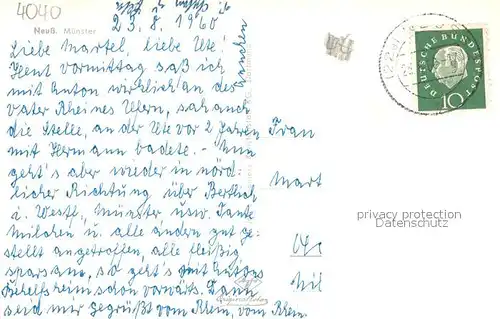 4040
23.8.1960
Neuß. Münster
Liebe Martel, liebe Ute!
Heut vormittag saß ich
mit Anton wirklich an des
Vater Rheines Ufern, sah auch
die Stelle, an der Ute vor 2 Jahren
mit Hermann badete. – Nun
geht's aber wieder in nörd-
licher Richtung über
i. Westf., Münster usw. Tante
milchen u. alle andern gut ge-
stellt angetroffen, alle fleißig
sparsam, so geht's mit Antons
Behelfsheim schon vorwärts. Dann
seid mir gegrüßt vom Rhein, vom Rhein.
Frau
Mart
DEUTSCHE BUNDESPOST
10
privacy protection
Datenschutz